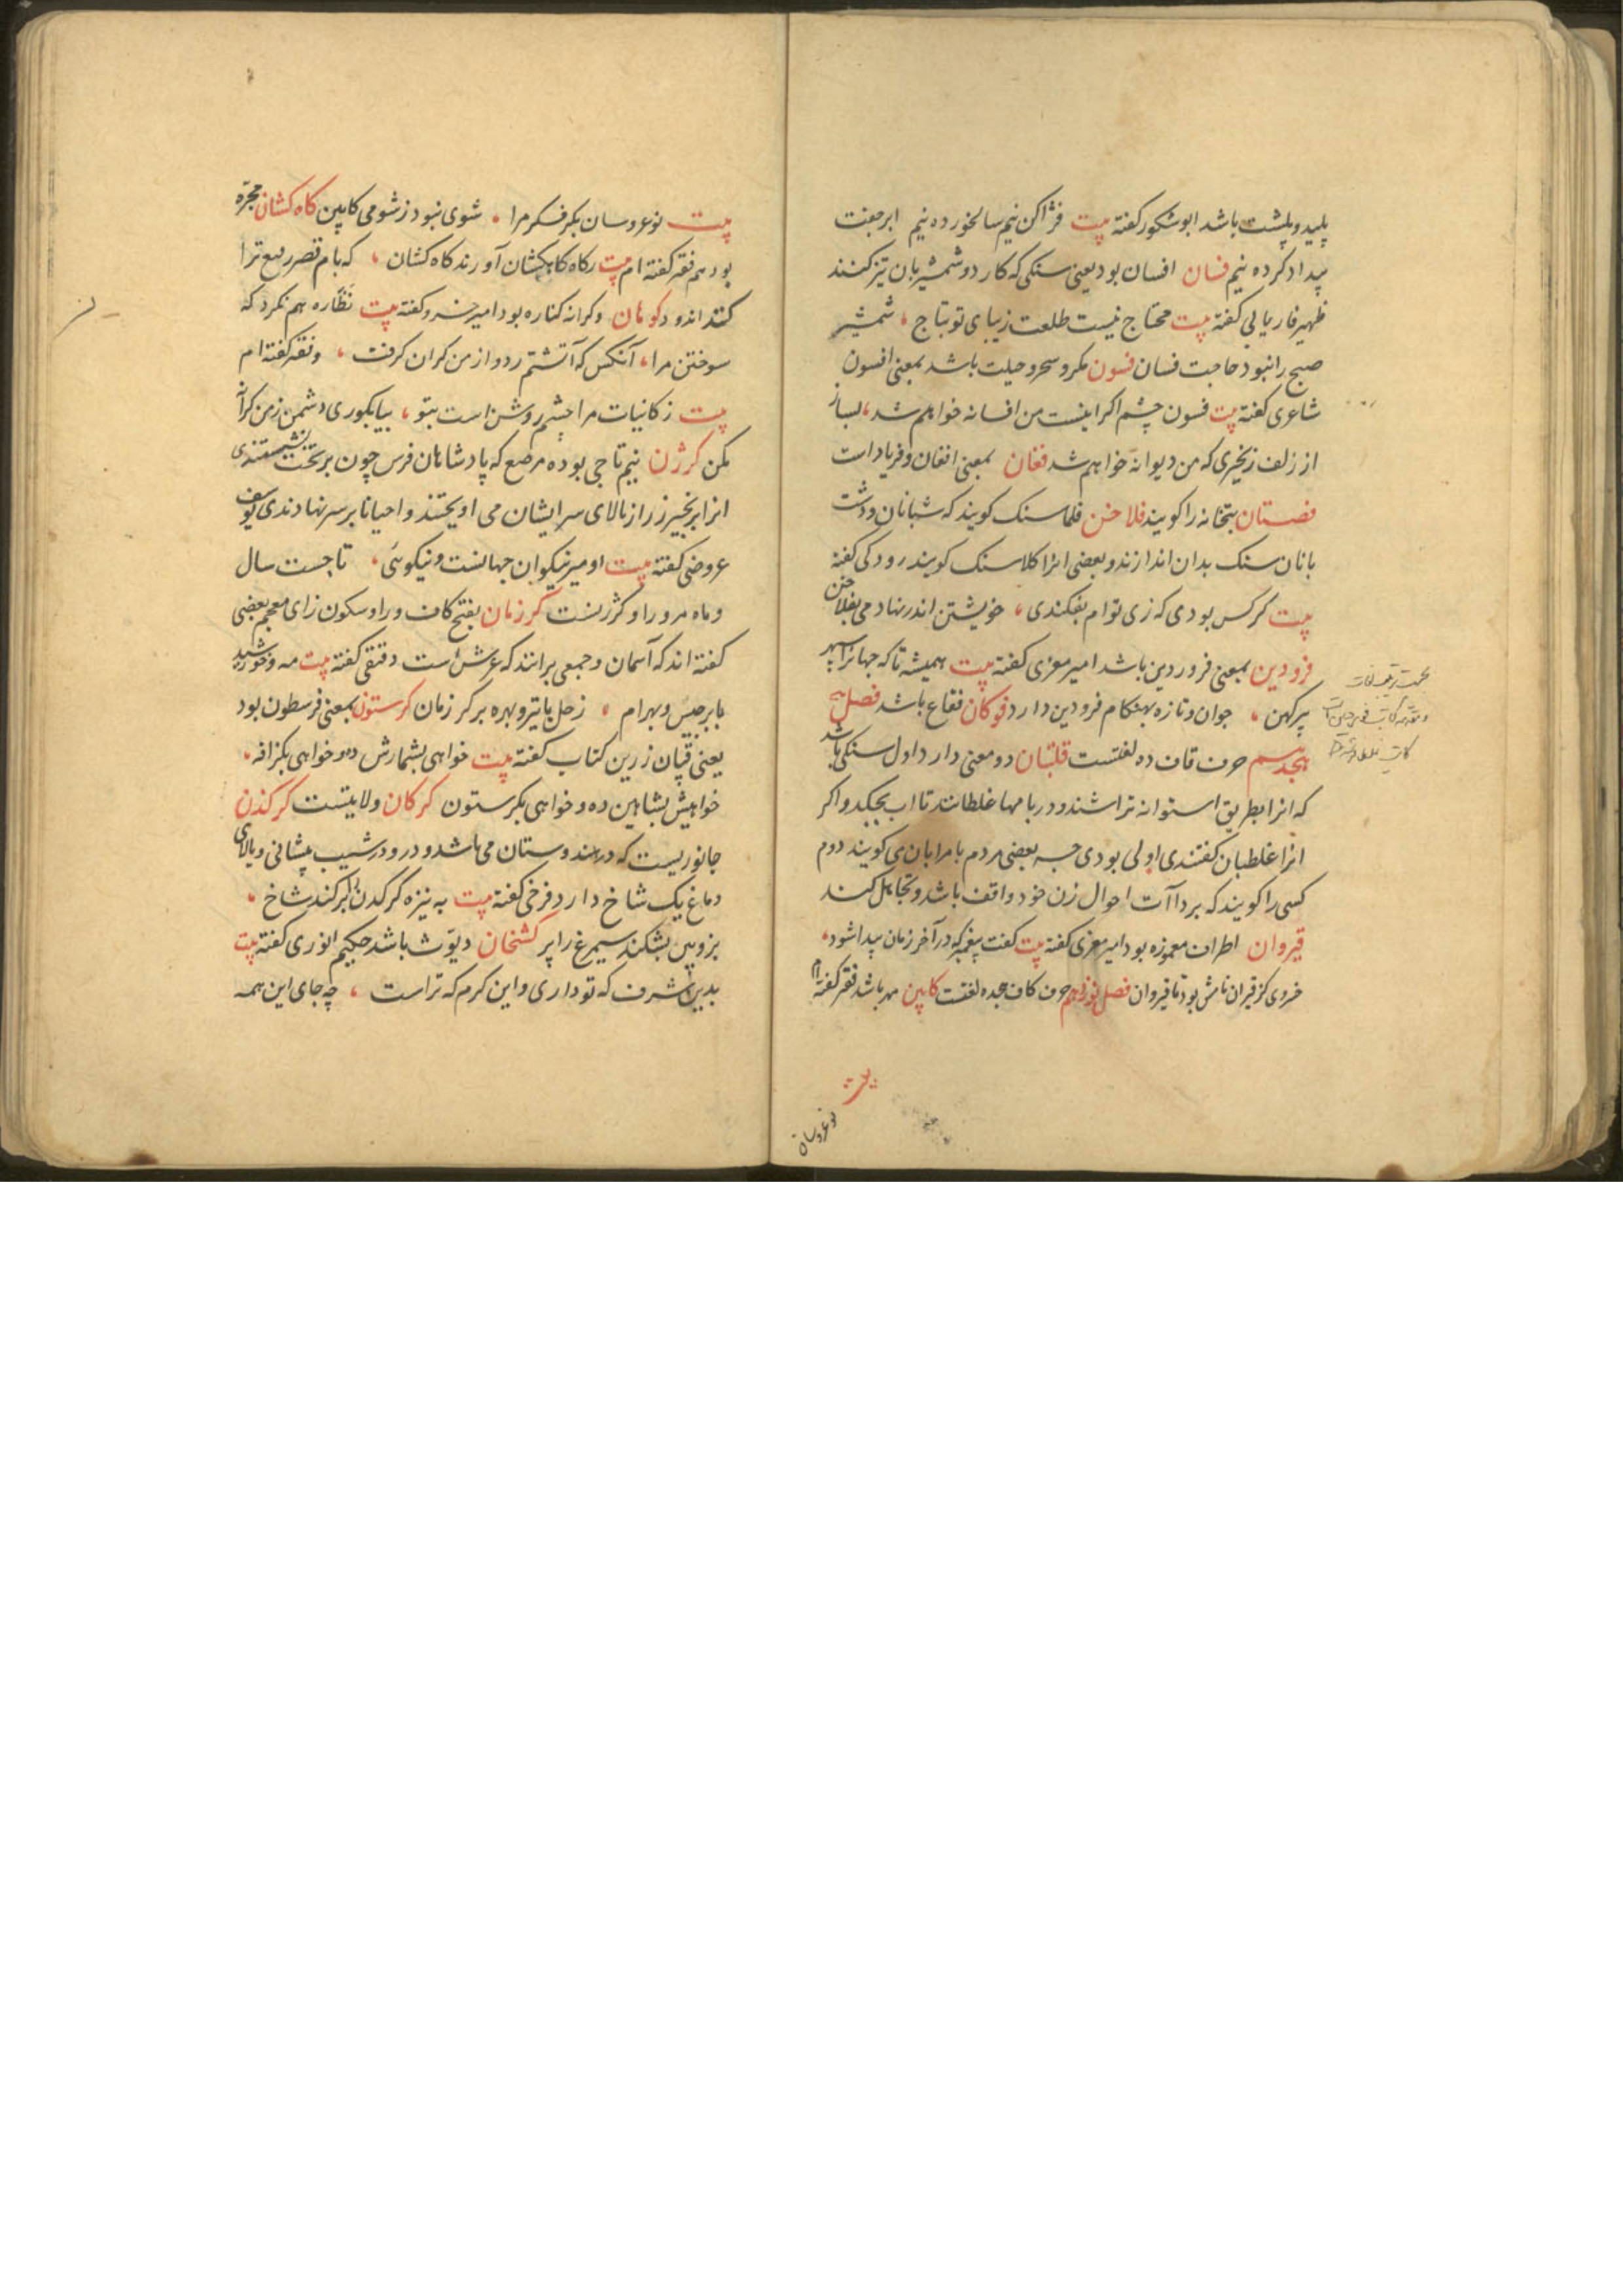 پلید و پلشت باشد ابوشکور کفته پیت فژاکن نیم سالخورده نیم ابر جفت
بیداد کرده نیم فسان افسان بود یعنی سنکی که کارد و شمشیر بان تیز کنند
ظهیر فاریابی کفته پیت محتاج نیست طلعت زیبای تو بتاج ، شمشیر
صبح را نبود حاجت فسان فسون مکر و سحر و حیلت باشد بمعنی افسون
شاعری کفته پیت فسون چشم اکر اینست من افسانه خواهم شد ، بساز
از زلف زنجیری که من دیوانه خواهم شد فغان بمعنی افغان و فریاد است
فصستان بتخانه را کویند فلاخن فلماسنک کویند که شبانان و دشت
بانان سنک بدان اندازند و بعضی انرا کلاسنک کویند رودکی کفته
پیت کرکس بودمی که زی توام بفکندی ، خویشتن اندر نهادمی بفلاخن
فرودین بمعنی فروردین باشد امیر معزی کفته پیت همیشه تا که جهانرا سپهر
پیر کهن ، جوان و تازه بهنکام فرودین دارد فوکان فقاع باشد فصل
هیجدهم حرف قاف ده لغتست قلتبان دو معنی دارد اول سنکی باشد
که انرا بطریق استوانه تراشند و در بامها غلطانند تا اب نچکد و اکر
انرا غلطبان کفتندی اولی بودی چه بعضی مردم بامرا بان می کویند دوم
کسی را کویند که بر داآت احوال زن خود واقف باشد و تجاهل کند
قیروان اطراف معموزه بود امیر معزی کفته پیت کفت پیغمبر که در آخر زمان پیدا شود ،
خروی کز قیران تامش بود تا قیروان فصل نوزدهم حرف کاف هجده لغتست کاپین مهر باشد فقیر کفته ام
پیت
نوعروسان
پیت نوعروسان بکر فکر مرا ، شوی نبود ز شومی کاپین کاه کشان مجرّه
بود هم فقیر کفته ام پیت کاه کاهکشان آورند کاه کشان ، که بام قصر رفیع ترا
کنند اندود کوهان وکرانه کناره بود امیر خسرو کفته پیت نظّاره هم نکرد که
سوختن مرا ، آنکس که آتشم زد و از من کران کرفت ، و فقیر کفته ام
پیت زکانیات مرا چشم روشن است بتو ، بیا بکوری دشمن ز من کرانه
مکن کرزن نیم تاجی بوده مرصع که پادشاهان فرس چون بر تخت نشستندی
انرا بزنجیر زر از بالای سر ایشان می اویختند و احیانا بر سر نهادندی یوسف
عروضی کفته پیت او میر نیکوان جهانست و نیکوئی ، تاجست سال
و ماه مرو را و کرزنست کرزمان بفتح کاف و را و سکون زای معجم بعضی
کفته اند که آسمان و جمعی برانند که عرش است دقیقی کفته پیت مه و خورشید
با برجیس و بهرام ، زحل با تیر و بهره بر کرزمان کرستون بمعنی فرسطون بود
یعنی قپان زرین کتاب کفته پیت خواهی بشمارش ده و خواهی بکزافه ،
خواهیش بشاهین ده و خواهی بکرستون کرکان ولایتست کرکدن
جانوریست که در هندوستان می باشد و در ودرشیب پیشانی و بالای
دماغ یک شاخ دارد فرخی کفته پیت به نیزه کرکدن را بر کند شاخ ،
بزوپین بشکند سیمرغ را پر کشخان دیّوث باشد حکیم انوری کفته پیت
بدین شرف که تو داری و این کرم که تراست ، چه جای این همه